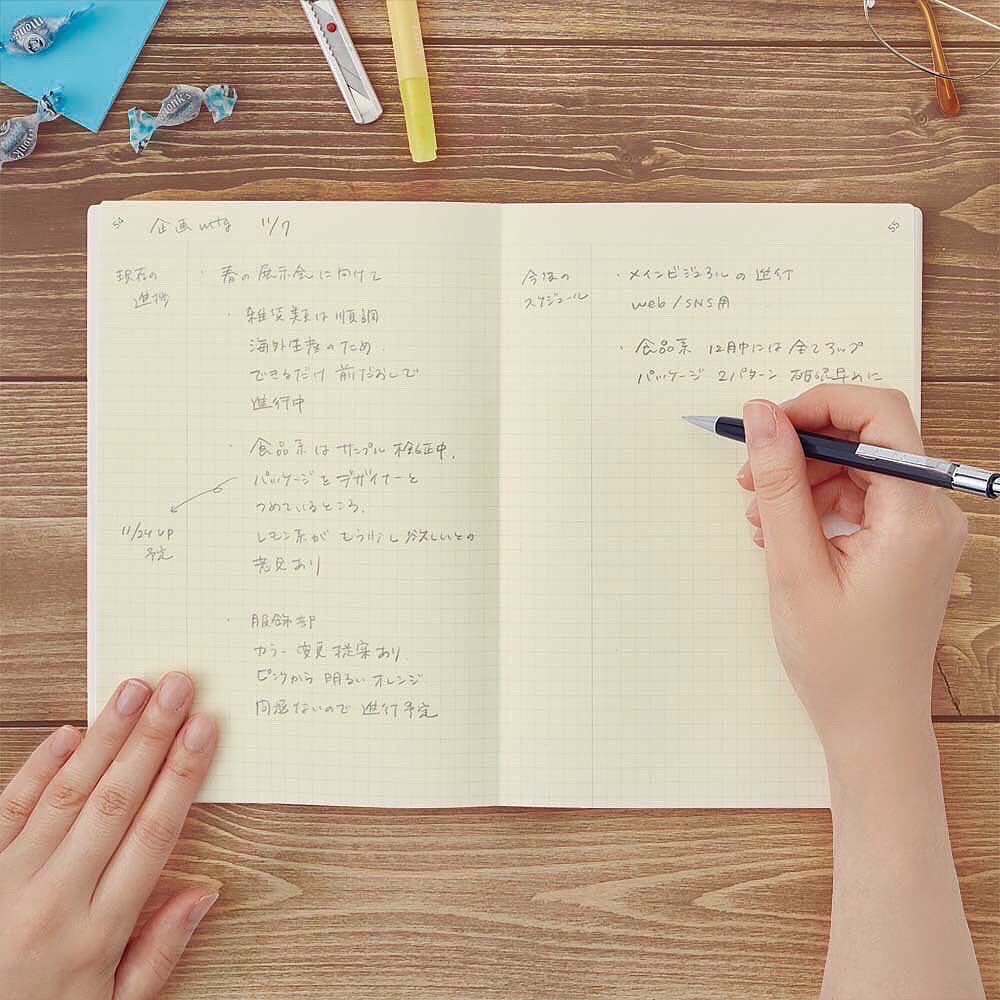 54 企画mtg 11/7
現在の
進捗
・春の展示会に向けて
・雑貨類は順調
海外生産のため
できるだけ前だおしで
進行中
・食品系はサンプル検証中。
パッケージをデザイナーと
つめているところ。
レモン系がもう少し欲しいとの
意見あり
11/24 UP
予定
・服飾部
カラー変更提案あり。
ピンクから明るいオレンジ
問題ないので進行予定
55
今後の
スケジュール
・メインビジュアルの進行
web/SNS用
・食品系 12月中には全てアップ
パッケージ 2パターン 確認早めに
monk